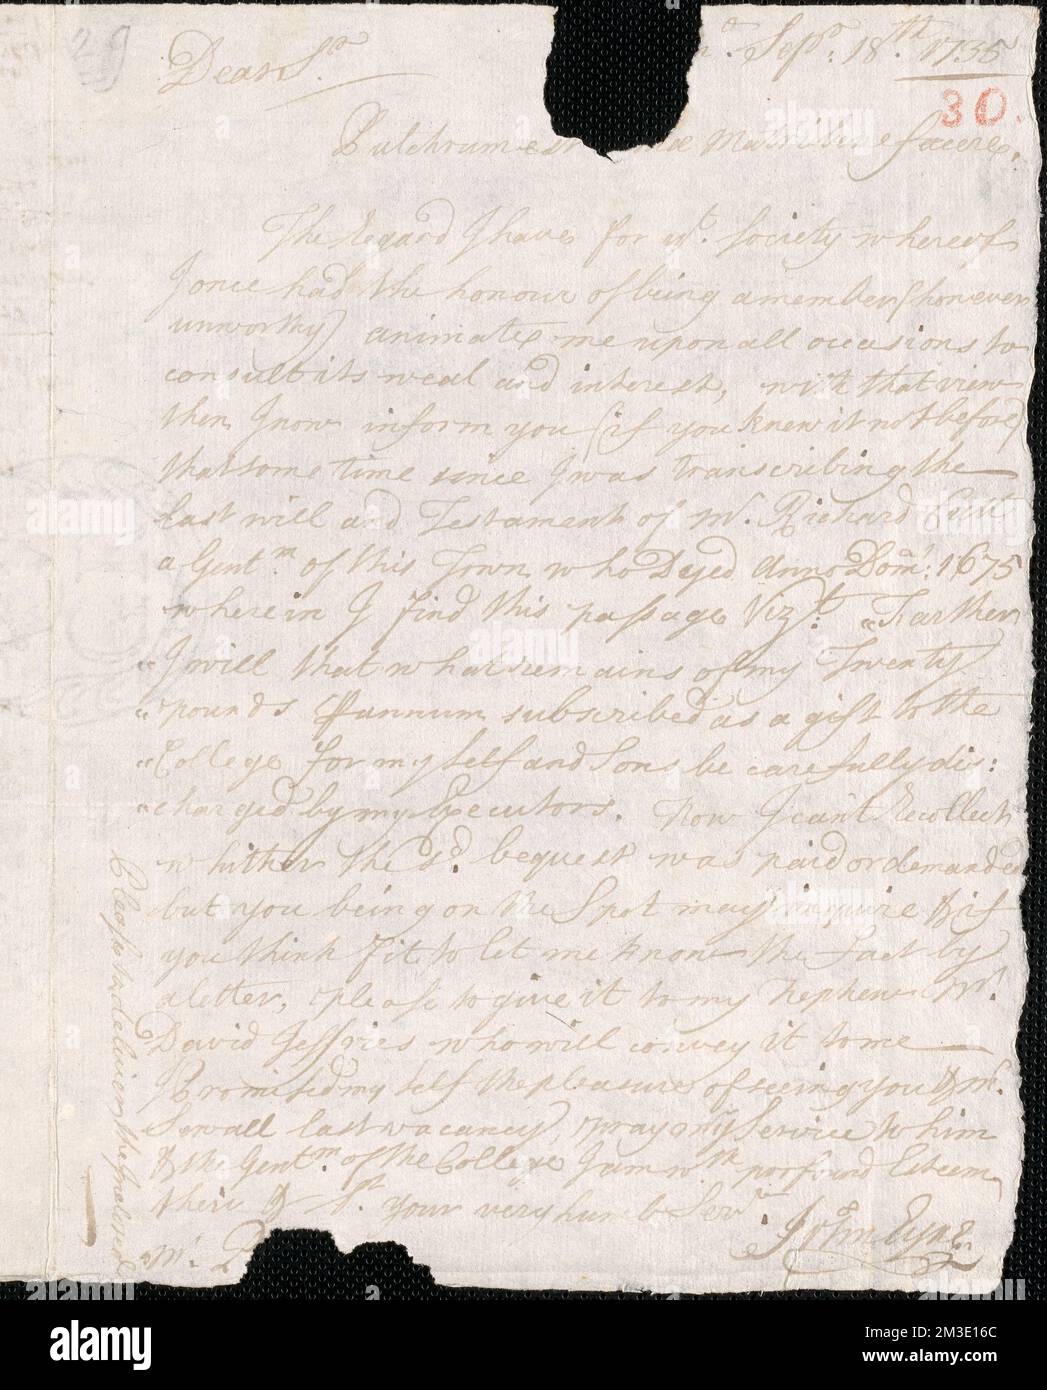 29
Dear Sr. Sepr. 18th. 1735
30.
Pulchrum est Matri benefacere,
The Regard I have for yr. Society whereof
I once had the honour of being a member (however
unworthy) animates me upon all occasions to
consult its weal and interest, with that view
then I now inform you (if you knew it not before)
that some time since I was transcribing the
last will and Testament of Mr. Richard Cutt
a Gentm. of this Town who Dyed Anno Dom: 1675
where in I find this passage Vizt. "Farther
"I will that what remains of my Twenty
"pounds Pannum subscribed as a gift to the
"College for my self and Sons be carefully dis:
"charged by my Executors. Now I can't Recollect
whither the sd. bequest was paid or demanded
but you being on the Spot may inquire & if
you think fit to let me know the fact by
a letter, please to give it to my Nephew Mr.
David Jeffries who will convey it to me
Promised my self the pleasure of seeing you & Mr.
Sewall last vacancy, pray my Service to him
& the Gentm. of the College I am wth. profound Esteem
theirs & Sr. your very humb Servt.
John Eyre
Mr.
Please to deliver the Inclosed
alamy
Image ID: 2M3E16C
www.alamy.com